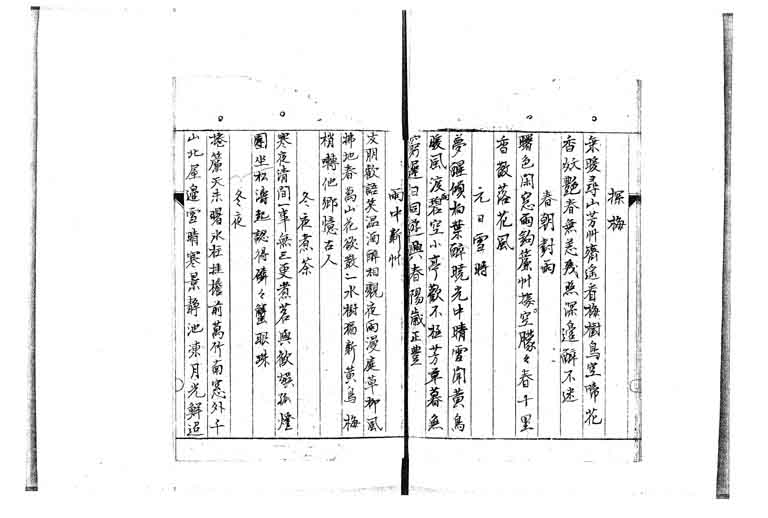 探梅
乘暖尋山芳艸齊遙看梅樹鳥空啼花
香妖艷春無意幾点深邊醉不迷
春朝對雨
曙色閑窓雨鈎簾艸接空朦々春千里
香散落花風
元日雪晴
夢醒傾柏葉醉曉光中晴雪聞黃鳥
暖風渡碧空小亭歡不極芳草暮無
窮遲日同遊興春陽歲正豊
雨中新州
友朋歡語笑温酒醉相親夜雨漫庭草柳風
拂地春萬山花欲散一水樹猶新黃鳥梅
梢囀他鄉憶古人
冬夜煮茶
寒夜清間一事無三更煮茗興歡娱孤燈
圍坐松濤起認得磷々蟹眼珠
冬夜
捲簾天未曙氷柱挂檐前萬竹南窓外千
山北屋邊雪晴寒景靜池凍月光鮮迢